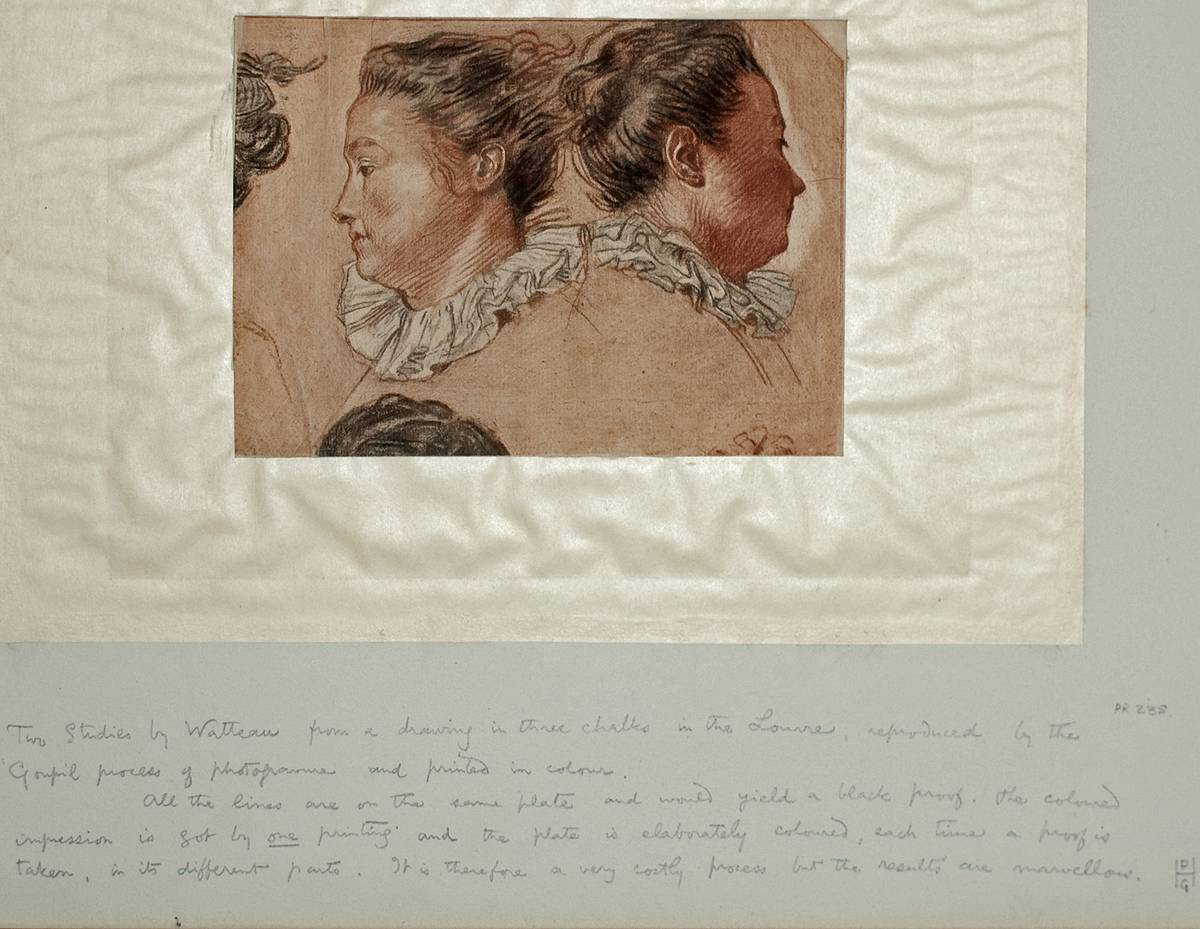 PR 238
Two Studies by Watteau from a drawing in three chalks in the Louvre, reproduced by the
Goupil process of photogravure and printed in colour.
All the lines are on the same plate and would yield a black proof. The coloured
impression is got by one printing and the plate is elaborately coloured, each time a proof is
taken, in its different parts. It is therefore a very costly process but the results are marvellous.